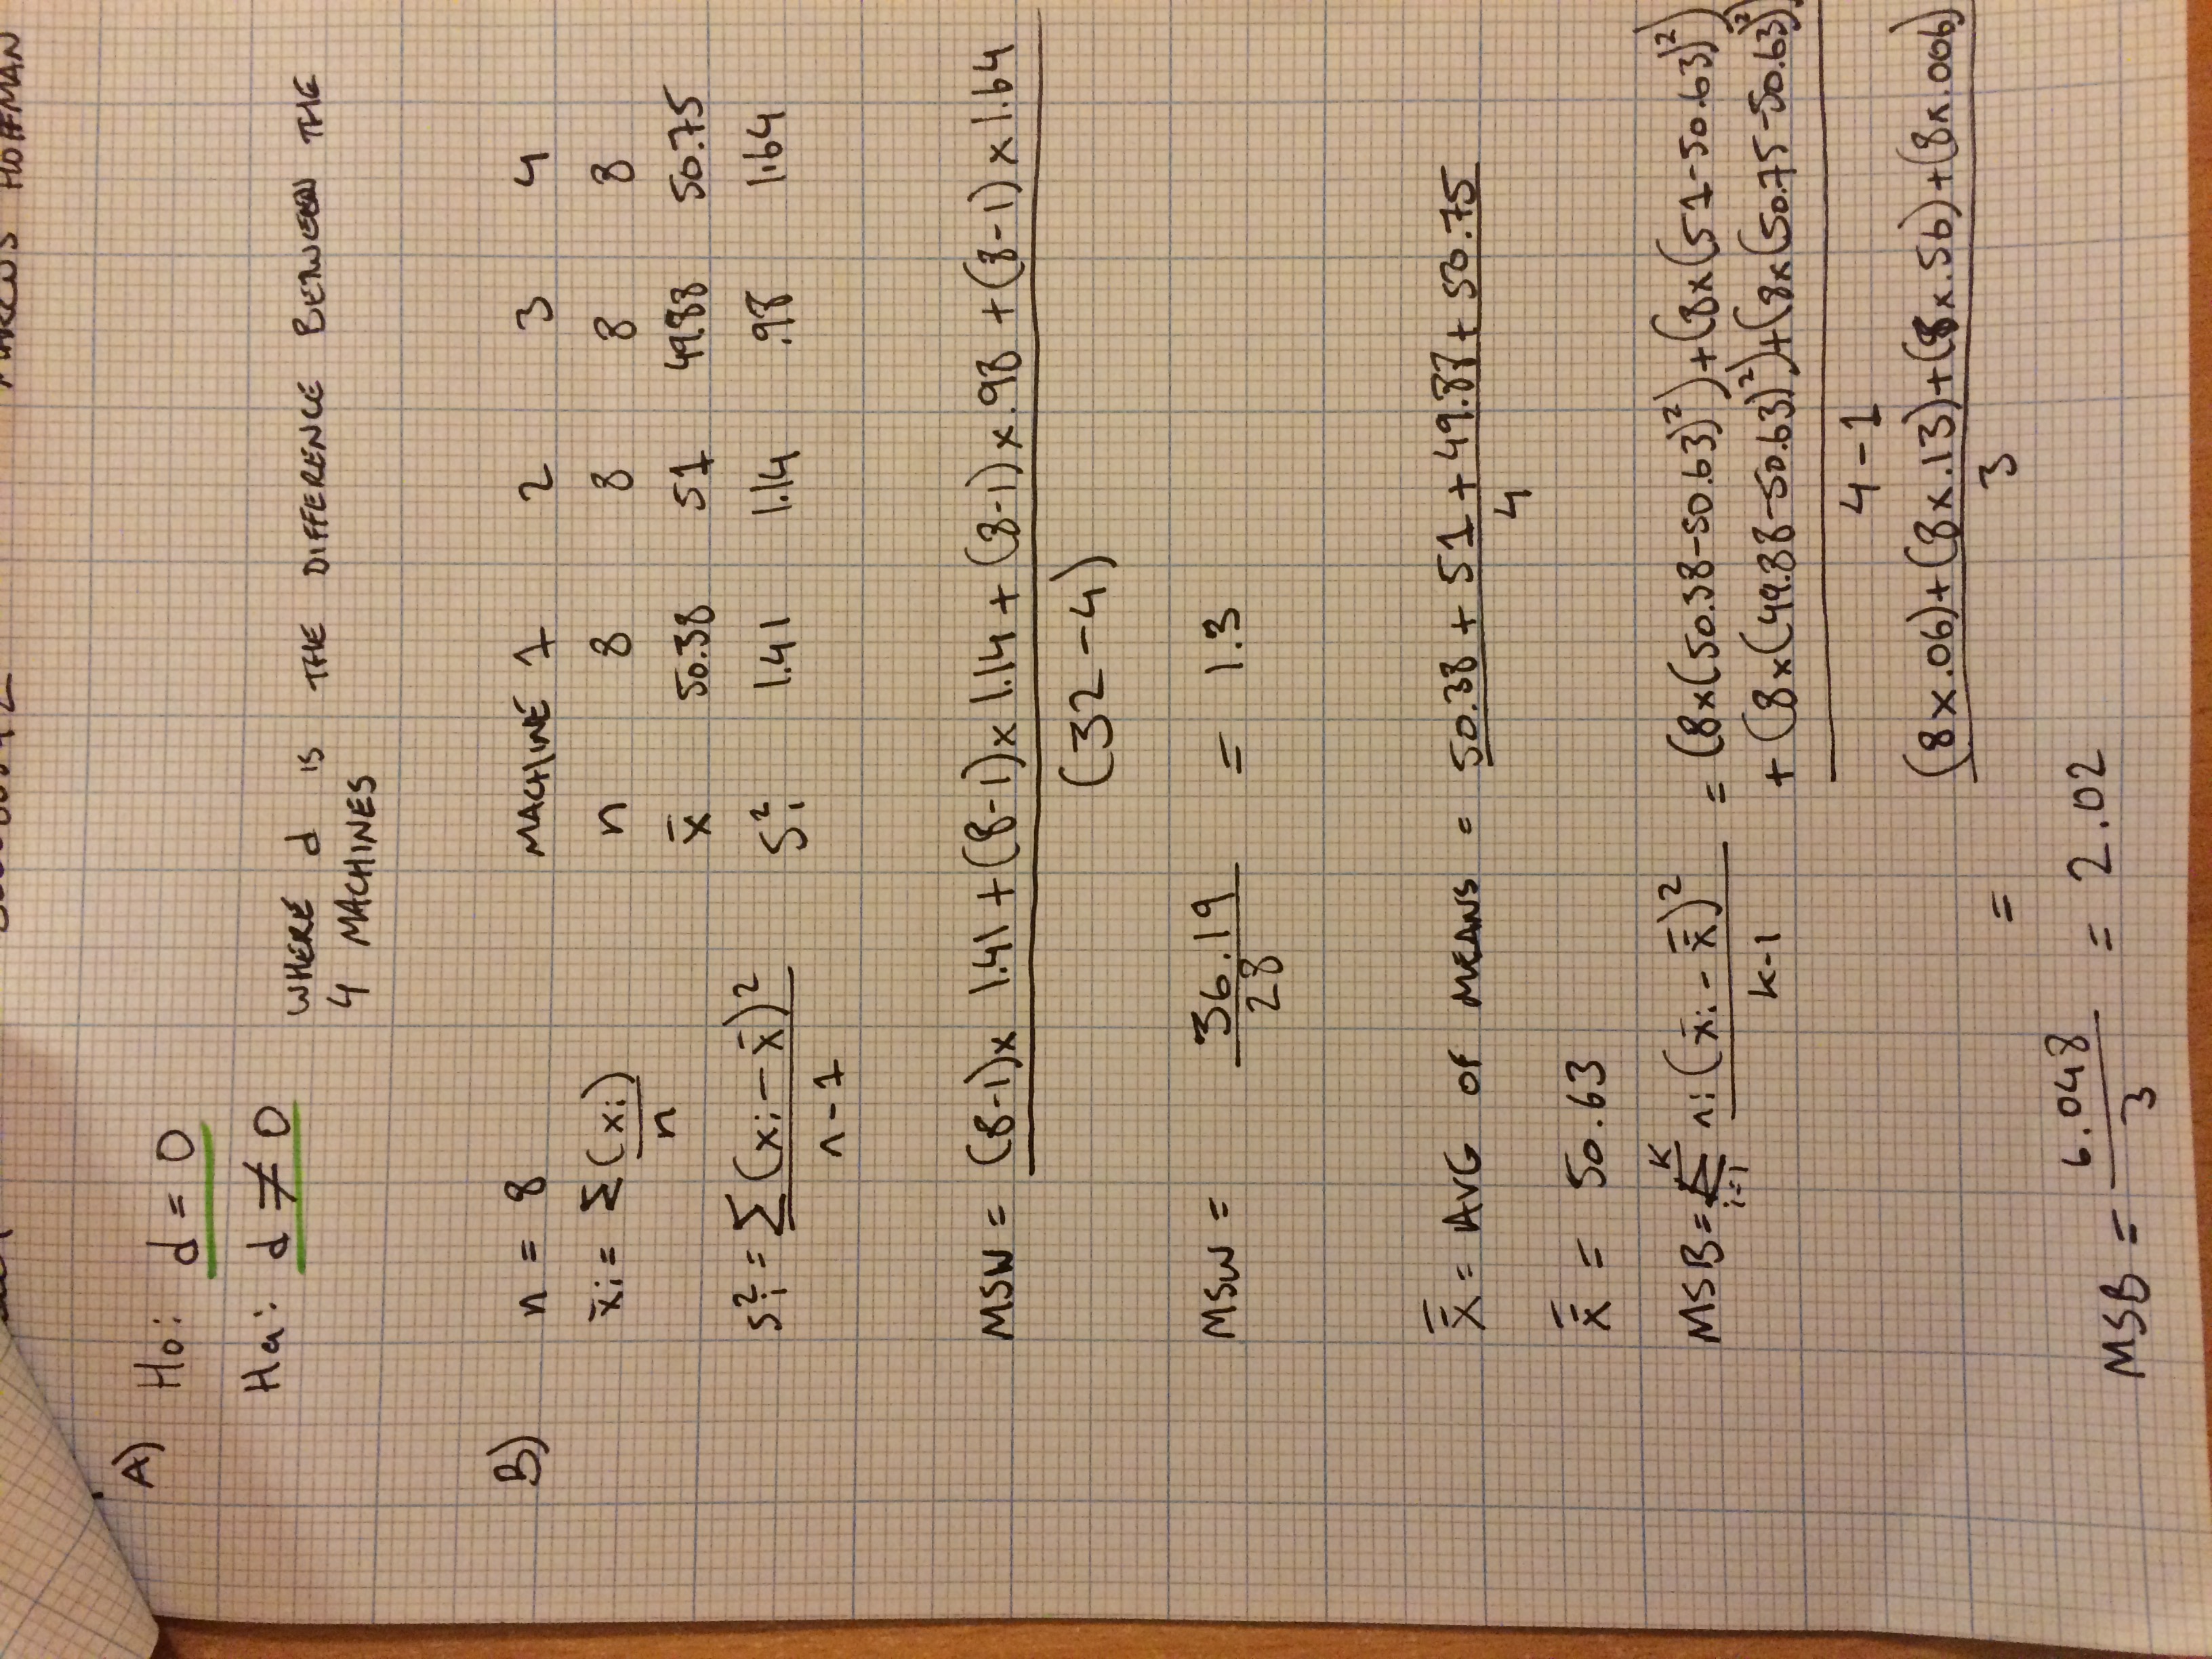 MARCUS HOFFMAN
A)
Ho: d = 0
Ha: d ≠ 0
WHERE d IS THE DIFFERENCE BETWEEN THE
4 MACHINES
B) n = 8 MACHINE 1 2 3 4
x̄i = Σ(xi)/n n 8 8 8 8
x̄ 50.38 51 49.88 50.75
si² = Σ(xi - x̄)²/n-1 Si² 1.41 1.14 .98 1.64
MSW = (8-1)x 1.41 + (8-1)x 1.14 + (8-1)x .98 + (8-1) x 1.64
(32-4)
MSW = 36.19/28 = 1.3
x̿ = AVG OF MEANS = 50.38 + 51 + 49.87 + 50.75
4
x̿ = 50.63
MSB = Σ K i=1 ni (x̄i - x̿)²/k-1 = (8x(50.38-50.63)²)+(8x(51-50.63)²)
+ (8x(49.88-50.63)²)+(8x(50.75-50.63)²)
4-1
= (8x.06)+(8x.13)+(8x.56)+(8x.006)
3
MSB = 6.048/3 = 2.02